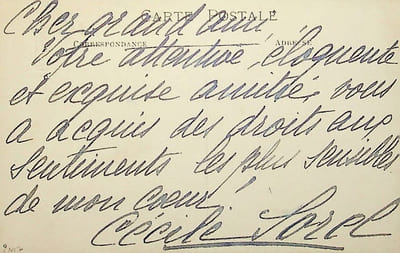 Cher grand ami,
CARTE POSTALE
CORRESPONDANCE ADRESSE
Votre attentive, éloquente
et exquise amitié, vous
a acquis des droits aux
sentiments les plus sensibles
de mon coeur!
Cécile Sorel